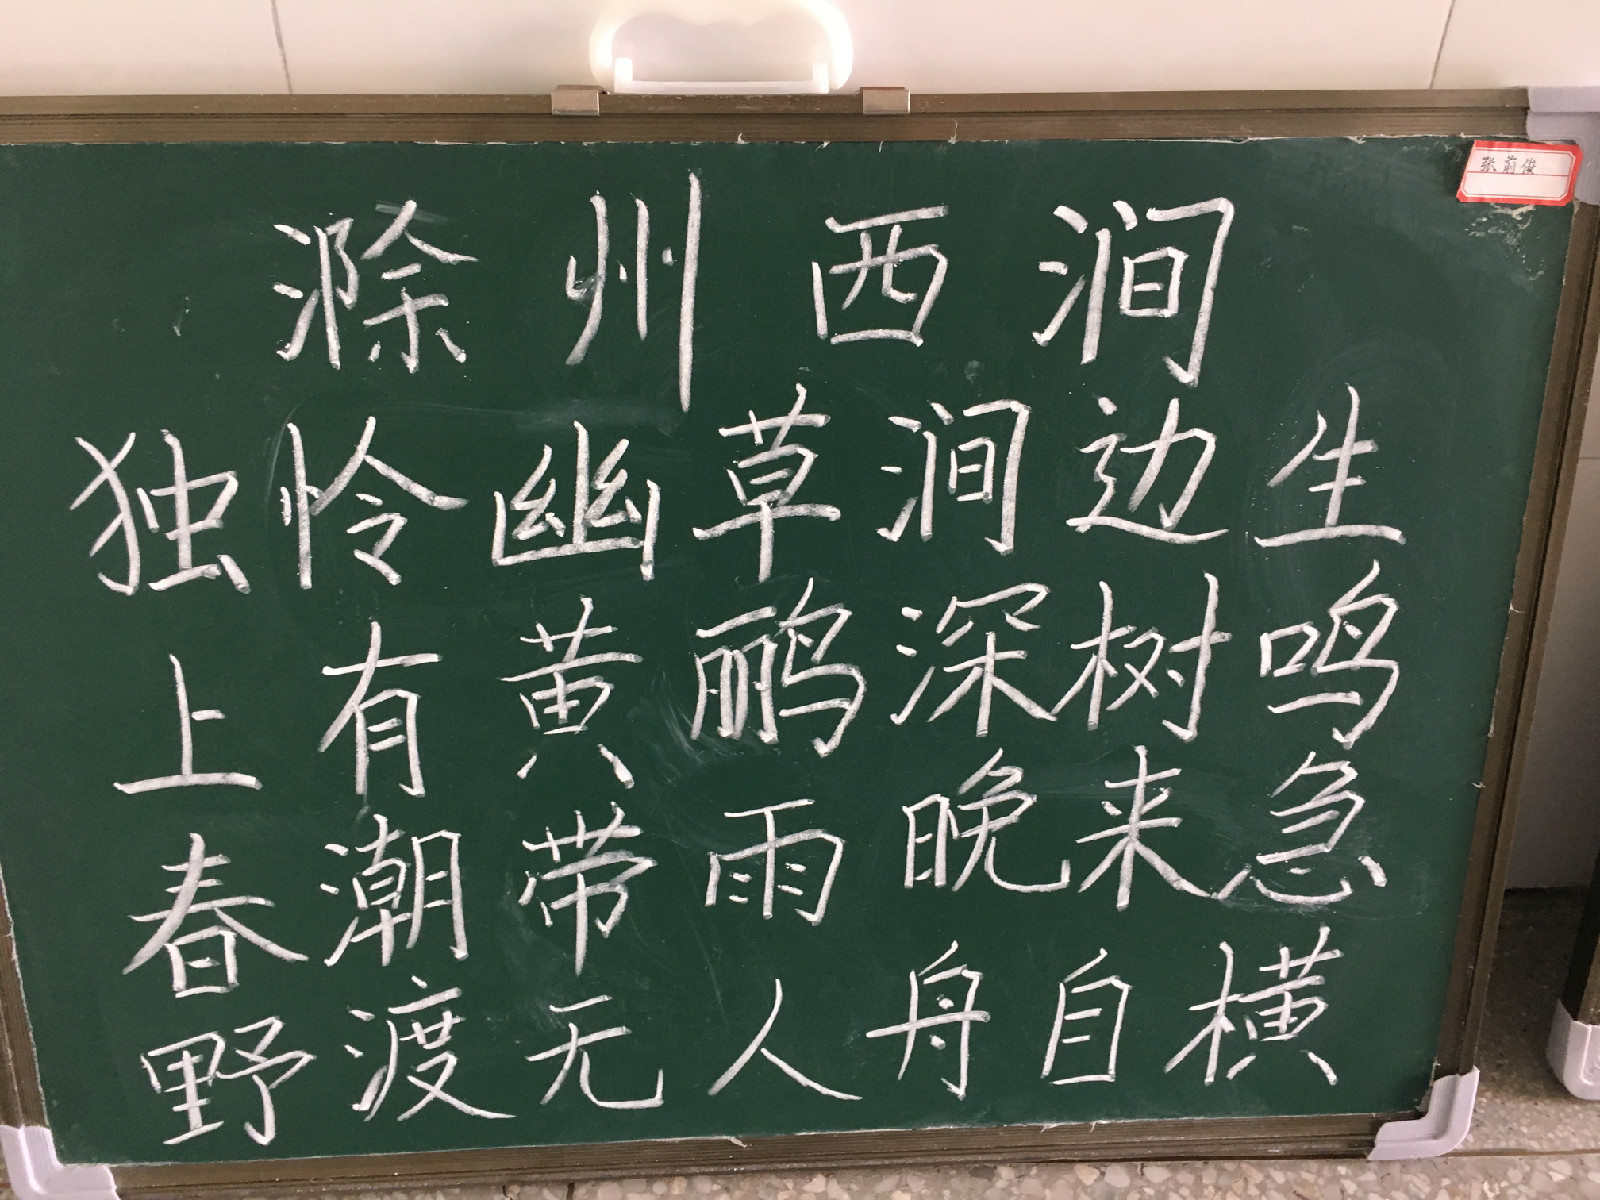 张前俊
滁州西涧
独怜幽草涧边生
上有黄鹂深树鸣
春潮带雨晚来急
野渡无人舟自横